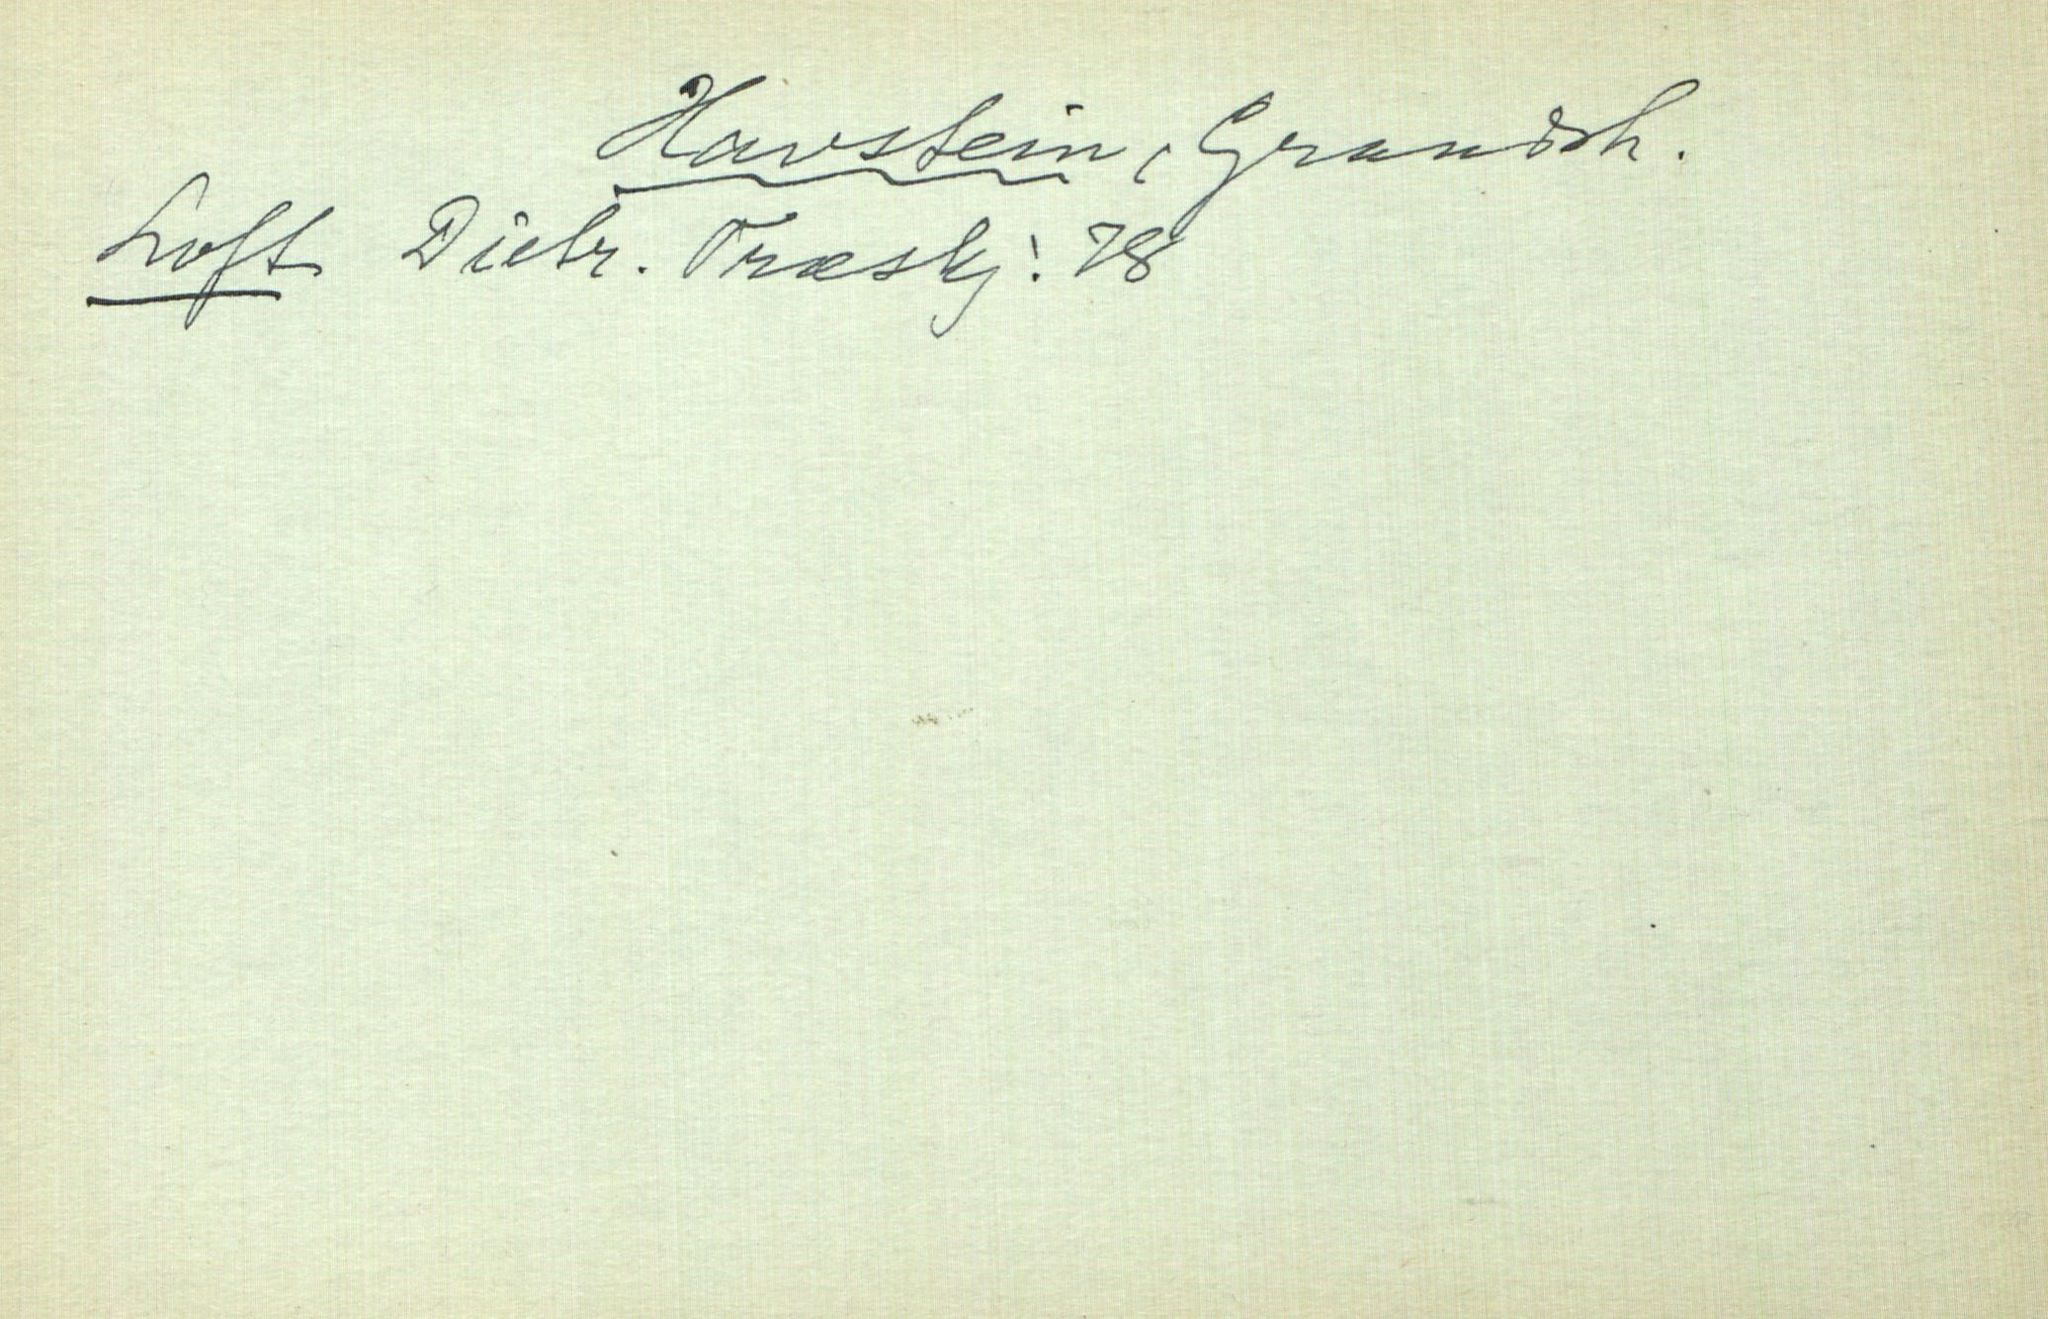 Havstein, Gransh.
Loft Dietr. Træskj: 78